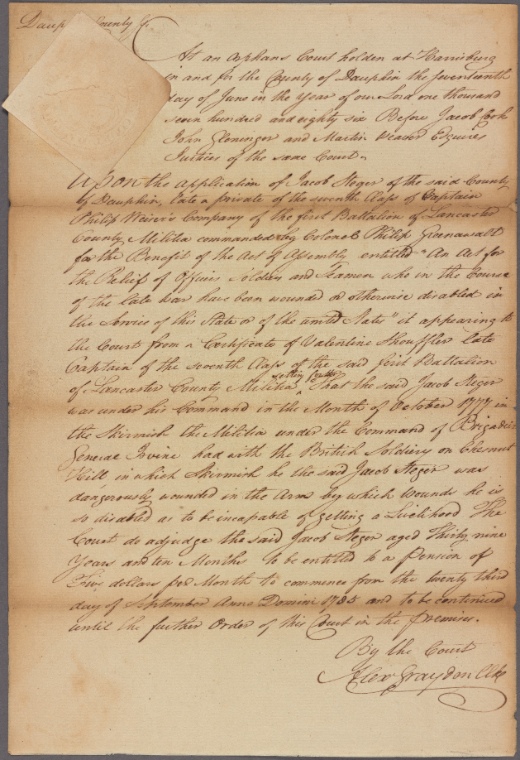 Dauphin County Ss
At an Orphans Court holden at Harrisburg
in and for the County of Dauphin the seventeenth
day of June in the Year of our Lord one thousand
seven hundred and eighty six Before Jacob Cook
John Gloninger and Martin Weaver Esquires
Justices of the same Court.
Upon the application of Jacob Steger of the said County
of Dauphin, late a private of the seventh Class of Captain
Philip Weiser's Company of the first Battalion of Lancaster
County Militia commanded by Colonel Philip Greenawalt
for the Benefit of the Act of Assembly entitled "An Act for
the Relief of Officers Soldiers and Seamen who in the Course
of the late War have been wounded or otherwise disabled in
the Service of this State or of the united States" it appearing to
the Court from a Certificate of Valentine Shouffler late
Captain of the seventh Class of the said first Battalion
of Lancaster County Militia setting forth That the said Jacob Steger
was under his Command in the Month of October 1777 in
the Skirmish the Militia under the Command of Brigadier
General Irvine had with the British Soldiery on Chesnut
Hill in which Skirmish he the said Jacob Steger was
dangerously wounded in the Arm by which wounds he is
so disabled as to be incapable of getting a Livelihood The
Court do adjudge the said Jacob Steger aged Thirty nine
Years and ten Months to be entitled to a Pension of
Five dollars per Month to commence from the twenty third
day of September Anno Domini 1785 and to be continued
until the further Order of this Court in the premises.
By the Court
Alexr Graydon Clk